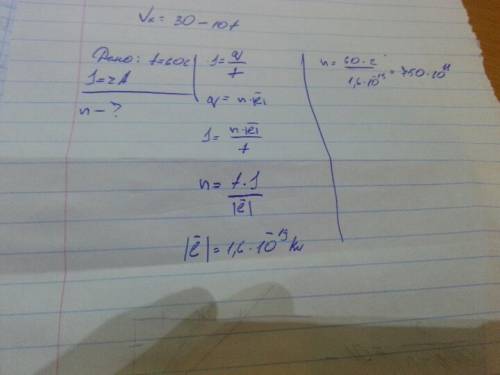 Vx = 30 - 10t
Дано: t=60c
J=2A
n - ?
J = q/t
q = n·|ē|
J = n·|ē|/t
n = t·J/|ē|
|ē| = 1,6·10⁻¹⁹ Кл
n = 60·2/1,6·10⁻¹⁹ = 750·10¹⁸